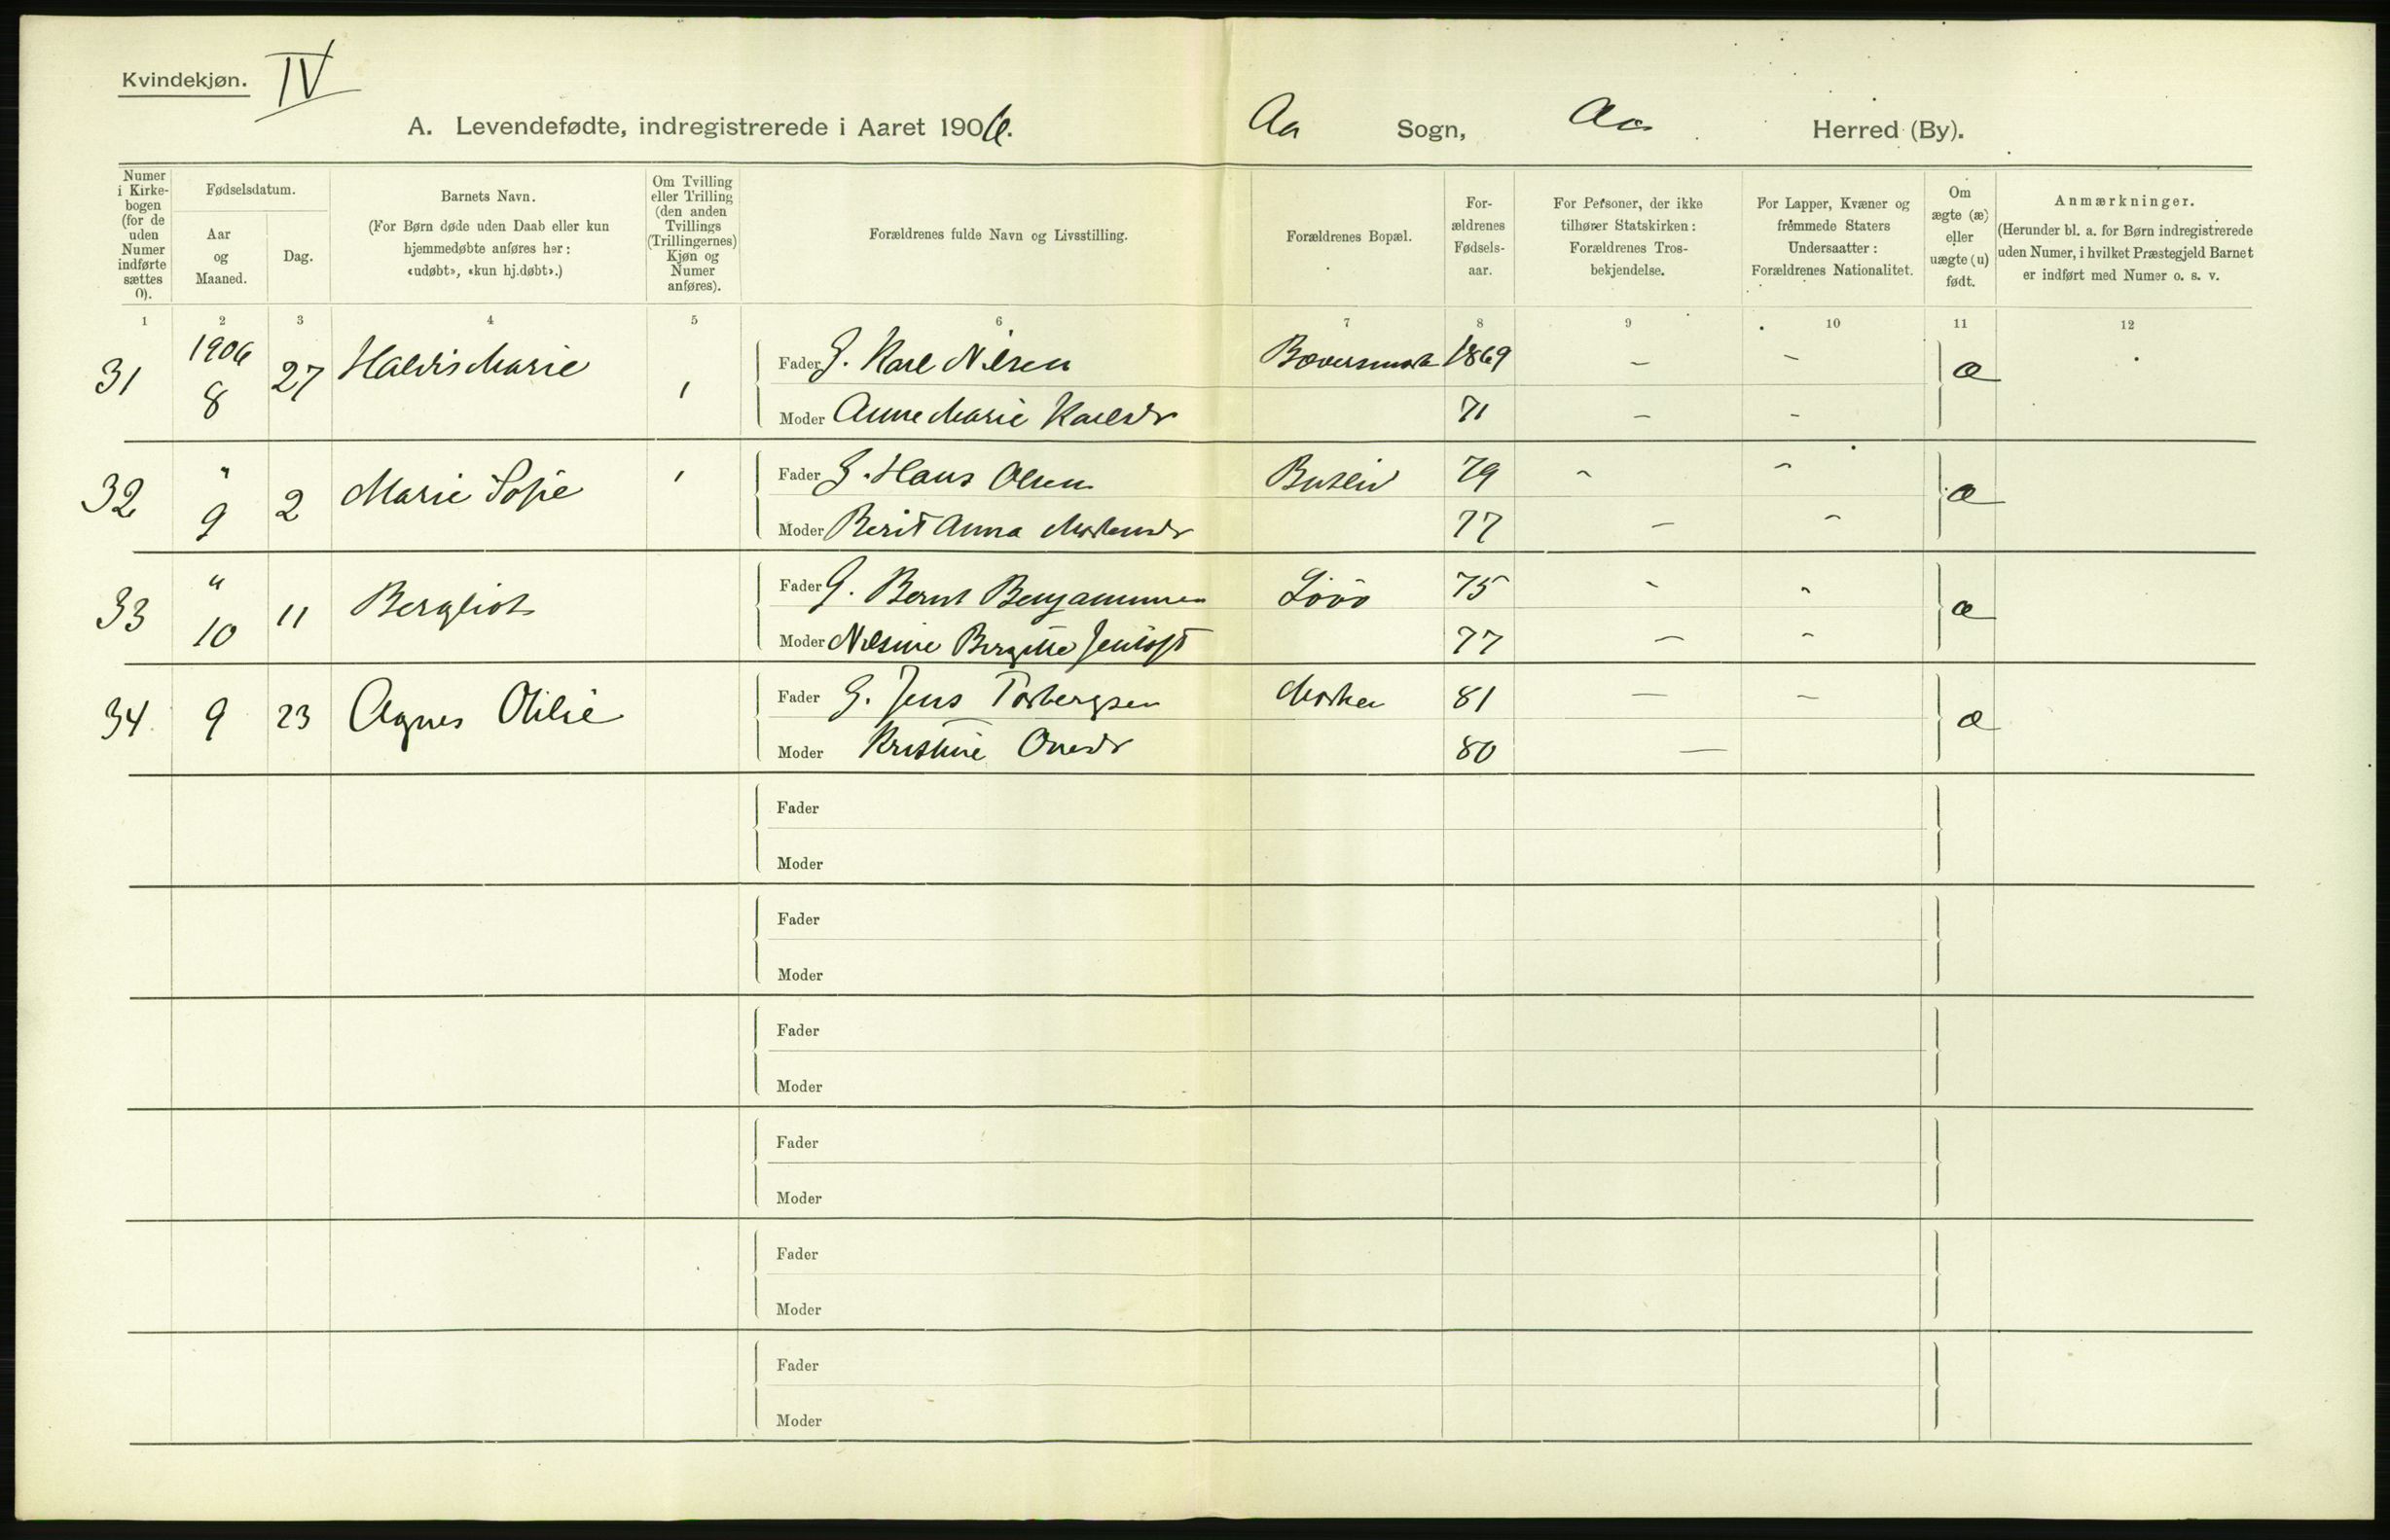 Kvindekjøn. IV
A. Levendefødte, indregistrerede i Aaret 1906. Aa Sogn, Aa Herred (By).
Numer i Kirkebogen (for de uden Numer indførte sættes 0).
Fødselsdatum.
Aar og Maaned.
Dag.
Barnets Navn.
(For Børn døde uden Daab eller kun hjemmedøbte anføres her: «udøbt», «kun hj.døbt».)
Om Tvilling eller Trilling (den anden Tvillings (Trillingernes) Kjøn og Numer anføres).
Forældrenes fulde Navn og Livsstilling.
Forældrenes Bopæl.
Forældrenes Fødselsaar.
For Personer, der ikke tilhører Statskirken: Forældrenes Trosbekjendelse.
For Lapper, Kvæner og fremmede Staters Undersaatter: Forældrenes Nationalitet.
Om ægte (æ) eller uægte (u) født.
Anmærkninger.
(Herunder bl. a. for Børn indregistrerede uden Numer, i hvilket Præstegjeld Barnet er indført med Numer o. s. v.
1 2 3 4 5 6 7 8 9 10 11 12
31 1906 8 27 Haldis Marie Fader G. Karl Nilsen 1869 - - æ
Moder Anne Marie Karlsdr 71 - -
32 " 9 2 Marie Sofie Fader G. Hans Olsen 79 - - æ
Moder Berit Anna 77 - -
33 " 10 11 Bergliot Fader G. Bernt Benjaminsen 75 - - æ
Moder Nilsine Bergitte 77 - -
34. 9 23 Agnes Otilie Fader G. Jens Torbergsen 81 - - æ
Moder Kristine Onesdr 80 -
Fader
Moder
Fader
Moder
Fader
Moder
Fader
Moder
Fader
Moder
Fader
Moder